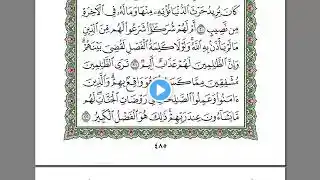 كَانَ يُرِيدُ حَرْثَ ٱلدُّنْيَا نُؤْتِهِۦ مِنْهَا وَمَا لَهُۥ فِى ٱلْأَخِرَةِ
مِن نَّصِيبٍ ٢٠ أَمْ لَهُمْ شُرَكَٰٓؤُا۟ شَرَعُوا۟ لَهُم مِّنَ ٱلدِّينِ
مَا لَمْ يَأْذَنۢ بِهِ ٱللَّهُ وَلَوْلَا كَلِمَةُ ٱلْفَصْلِ لَقُضِىَ بَيْنَهُمْ
وَإِنَّ ٱلظَّٰلِمِينَ لَهُمْ عَذَابٌ أَلِيمٌ ٢١ تَرَى ٱلظَّٰلِمِينَ
مُشْفِقِينَ مِمَّا كَسَبُوا۟ وَهُوَ وَاقِعٌۢ بِهِمْ وَٱلَّذِينَ
ءَامَنُوا۟ وَعَمِلُوا۟ ٱلصَّٰلِحَٰتِ فِى رَوْضَاتِ ٱلْجَنَّاتِ لَهُم
مَّا يَشَآءُونَ عِندَ رَبِّهِمْ ذَٰلِكَ هُوَ ٱلْفَضْلُ ٱلْكَبِيرُ ٢٢
٤٨٥